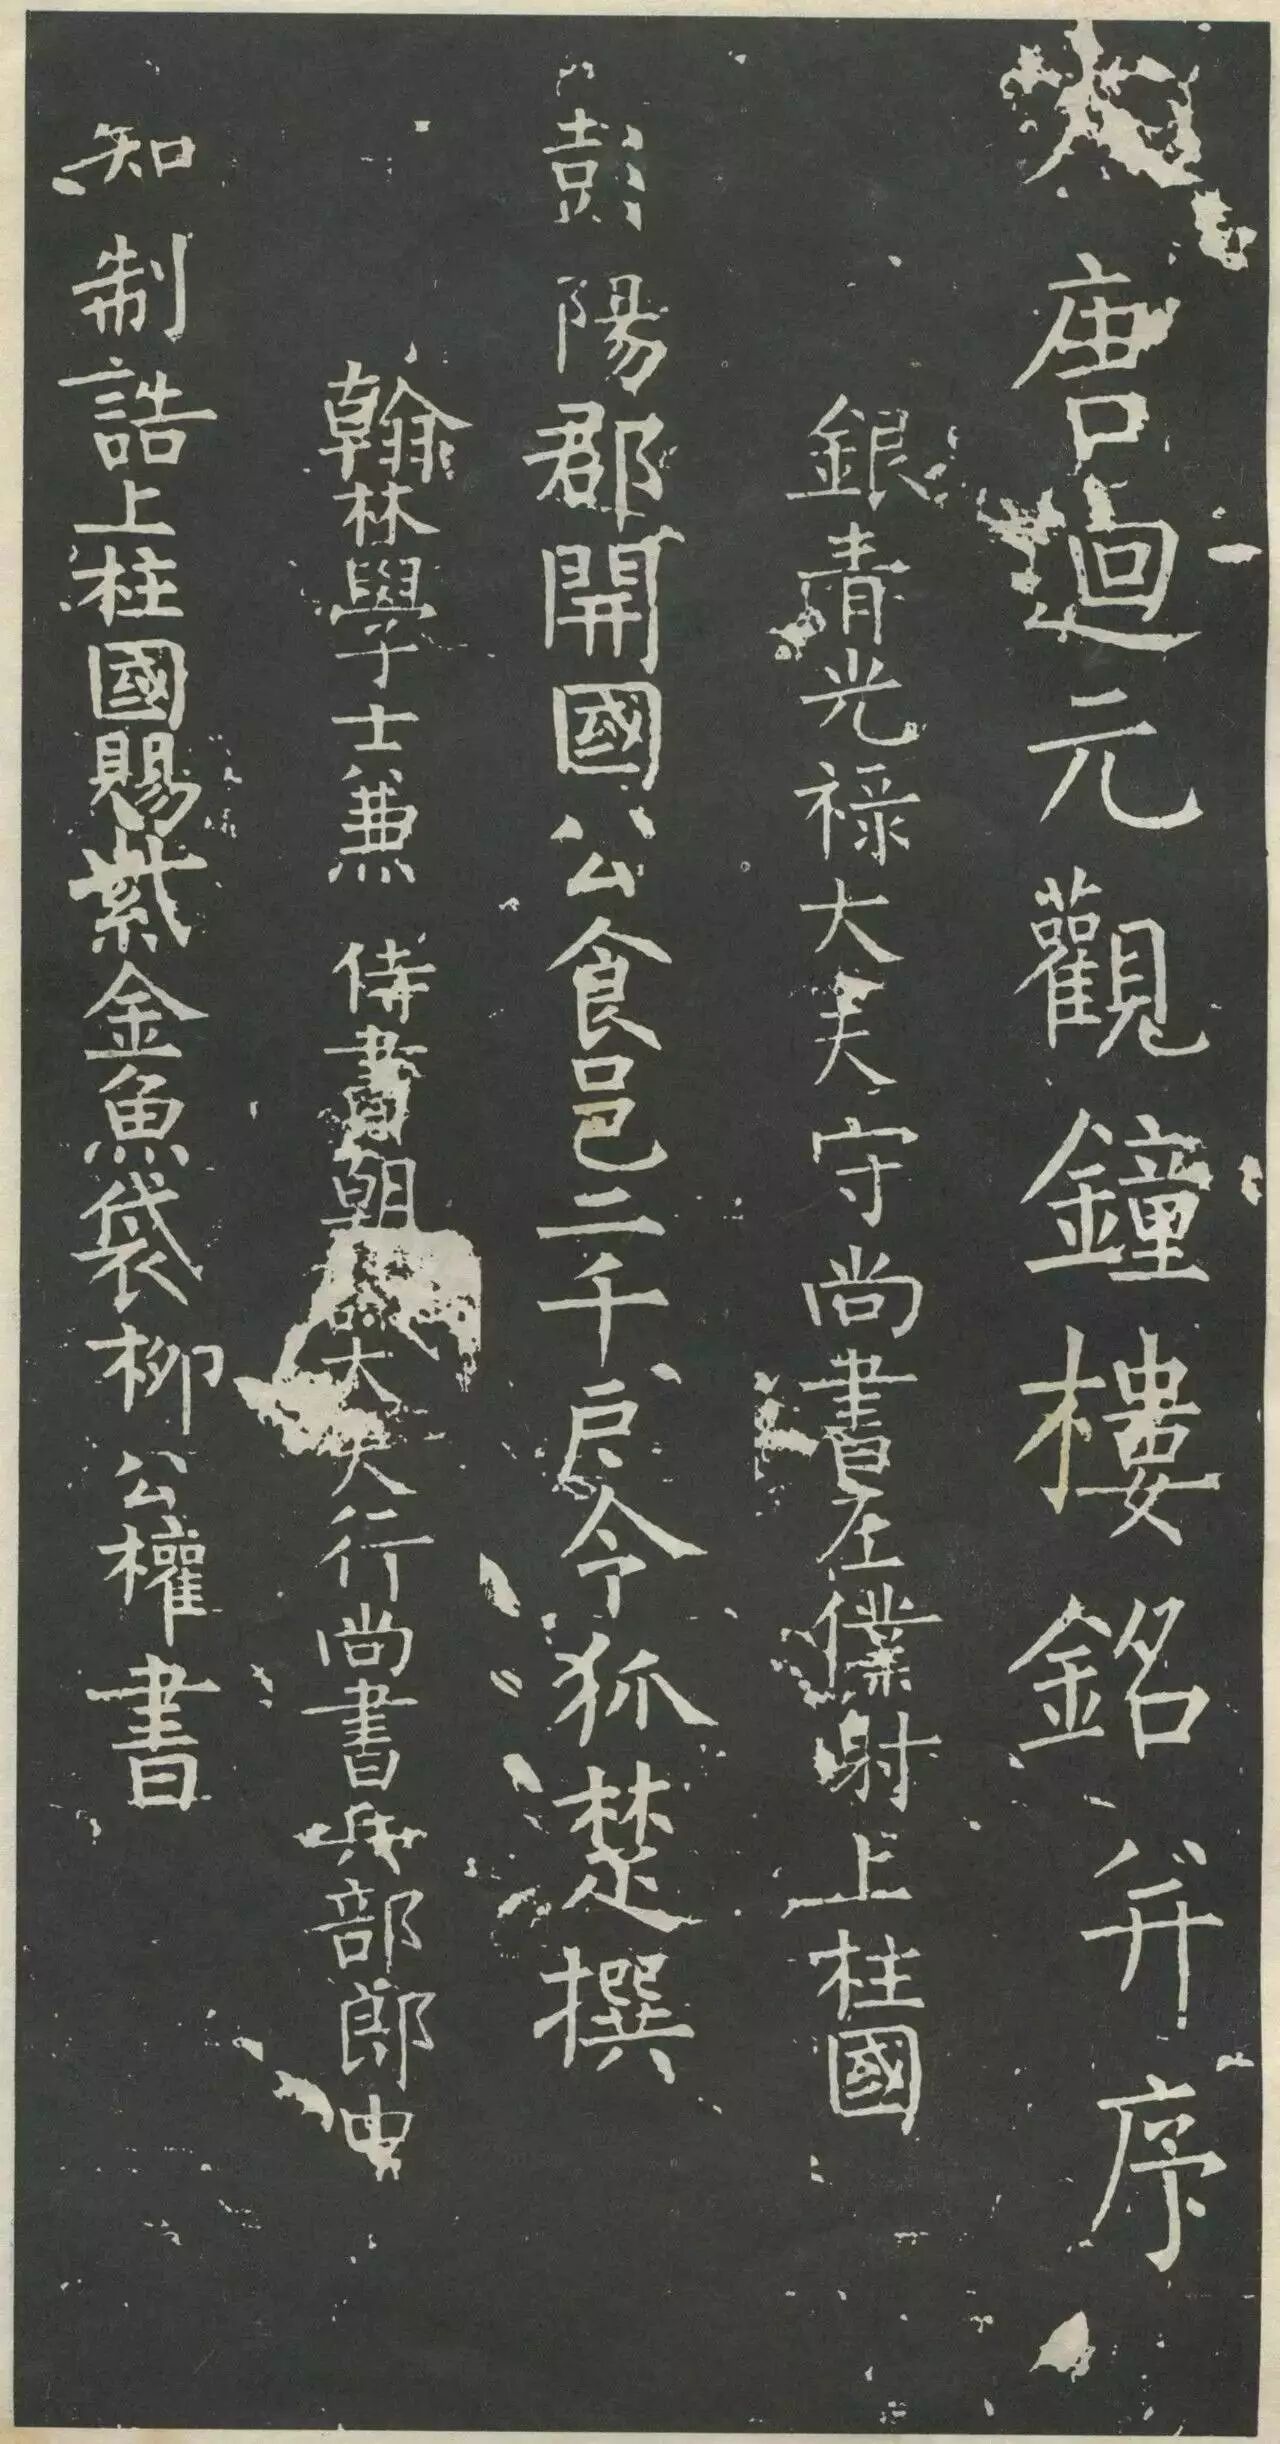 大唐迴元觀鐘樓銘并序
銀青光禄大夫守尚書左僕射上柱國
彭陽郡開國公食邑二千戶令狐楚撰
翰林學士兼侍書朝議大夫行尚書兵部郎中
知制誥上柱國賜紫金魚袋柳公權書